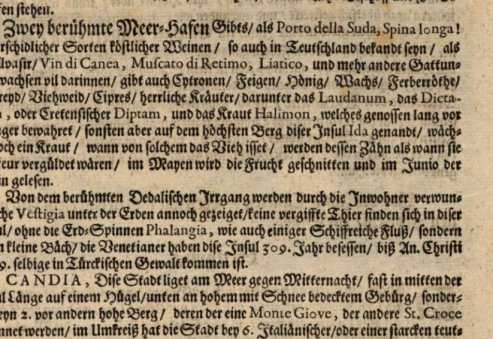 fen stehen.
Zwey berühmte Meer-Hafen Gibts/ als Porto della Suda, Spina longa!
rschidlicher Sorten köstlicher Weinen/ so auch in Teutschland bekandt seyn/ als
lvasir/ Vin di Canea, Muscato di Retimo, Liatico, und mehr andere Gattun-
wachsen vil darinnen/ gibt auch Cytronen/ Feigen/ Hönig/ Wachs/ Ferberröthe/
reyd/ Viehweid/ Cipres/ herrliche Kräuter/ darunter das Laudanum, das Dicta-
, oder Cretensischer Diptam, und das Kraut Halimon, welches genossen lang vor
ger bewahret/ sonsten aber auf dem höchsten Berg diser Insul Ida genandt/ wäch-
och ein Kraut/ wann von solchem das Vieh isset/ werden dessen Zähn als wann sie
eur vergüldet wären/ im Mayen wird die Frucht geschnitten und im Junio der
in gelesen.
Von dem berühmten Dedalischen Irrgang werden durch die Inwohner verwun-
che Vestigia unter der Erden annoch gezeiget/ keine vergiffte Thier finden sich in diser
ul/ ohne die Erd-Spinnen Phalangia, wie auch einiger Schiffreiche Fluß/ sondern
n kleine Bäch/ die Venetianer haben dise Insul 509. Jahr besessen/ biß An. Christi
9. selbige in Türckischen Gewalt kommen ist.
CANDIA, Dise Stadt ligt am Meer gegen Mitternacht/ fast in mitten der
ul Länge auf einem Hügel/ unten an hohem mit Schnee bedecktem Gebürg/ sonder-
eyn 2. vor andern hohe Berg/ deren der eine Monte Giove, der andere St. Croce
nnet werden/ im Umkreiß hat die Stadt bey 6. Italiänischer/ oder einer starcken teut-